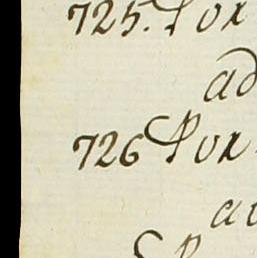 725. Por
ad
726 Por